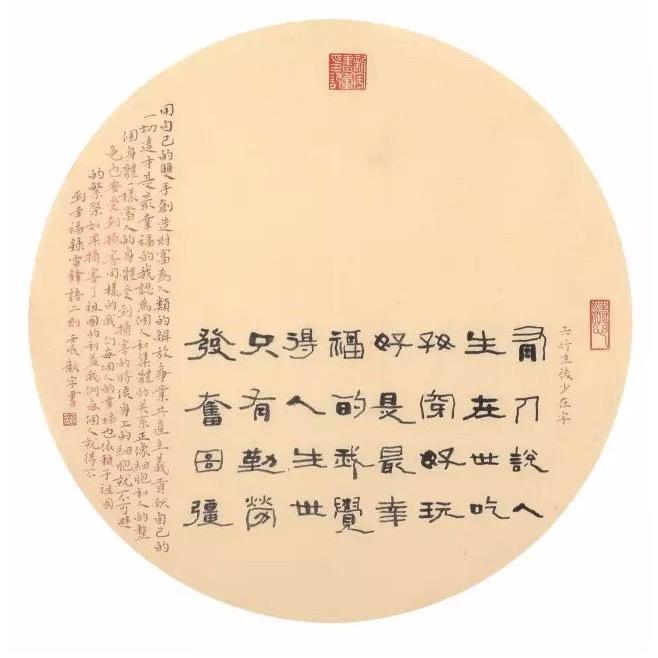 六行生後少在字
有人說人
生在世吃
好穿好玩
好是最幸
福的我覺
得人生世
只有勤勞
發奮圖彊
用自己的雙手創造財富為人類的解放事業共產主義貢獻自己的
一切這才是最幸福的我認為個人和集體的关系正像細胞和人的整
個身體一樣當人的身體受到損害的時候身上的細胞就不可避
免也要受到損害同樣的我們每個人的幸福也依賴于祖國
的繁榮如果損害了祖國的利益我們每個人就得不
到幸福錄雷鋒語二則書